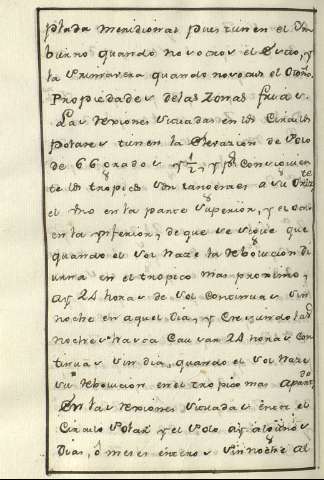 plada meridionas pues tienen el Yn
bierno quando nosotros el Estio, y
la Primavera quando nosotros el Otoño.
Propiedades de las Zonas frias.
Las Rexiones situadas en los Circulos
Polares tienen la Elevazion de Polo
de 66 grados y 1/2, y por Consiguien
te los tropicos son tangentes a su Orizte
el uno en la parte Superior, y el otro
en la ynferior, de que se sigue que
quando el Sol haze la Rebolucion Di
urna en el tropico mas proximo,
ay 24 horas de Sol Continuas sin
noche en aquel Dia, y Creciendo las
noches hasta Causar 24 horas Con
tinuas sin dia, quando el Sol haze
su Rebolucion en el tropico mas apartdo
En las Rexiones situadas entre el
Circulo Polar y el Polo ay algunos
Dias, ô meses enteros sin noche al